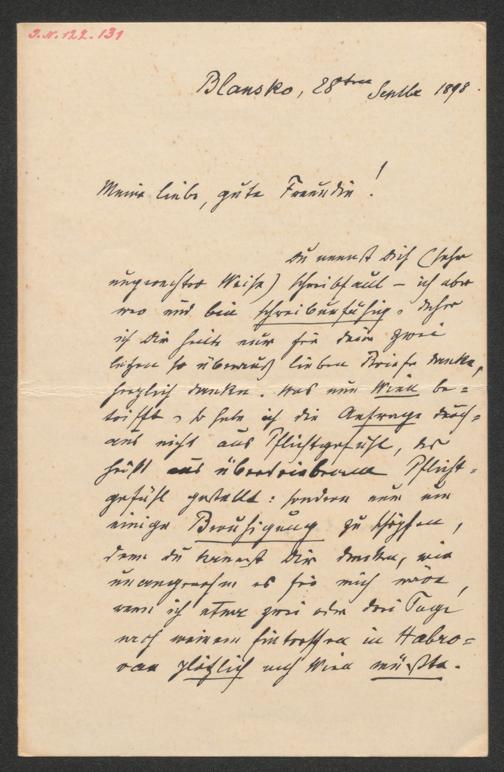 J.N. 122.131
Blansko, 28ten Septbr 1898.
Meine liebe, gute Freundin!
Du nennst Dich (sehr
ungerechter Weise) schreibfaul – ich aber
bin schreibunfähig, daher
ich Dir heute nur für Deine zwei
letzten so überaus lieben Briefe danke,
herzlich danke. Was nun Wien be=
trifft, so habe ich die Anfrage durch=
aus nicht aus Pflichtgefühl, das
heißt aus übertriebenem Pflicht=
gefühl gestellt: sondern nur um
einige Beruhigung zu schöpfen,
denn Du kannst Dir denken, wie
unangenehm es für mich wäre,
wenn ich etwa zwei oder drei Tage
nach meinem Eintreffen in Habro=
van plötzlich nach Wien müßte.